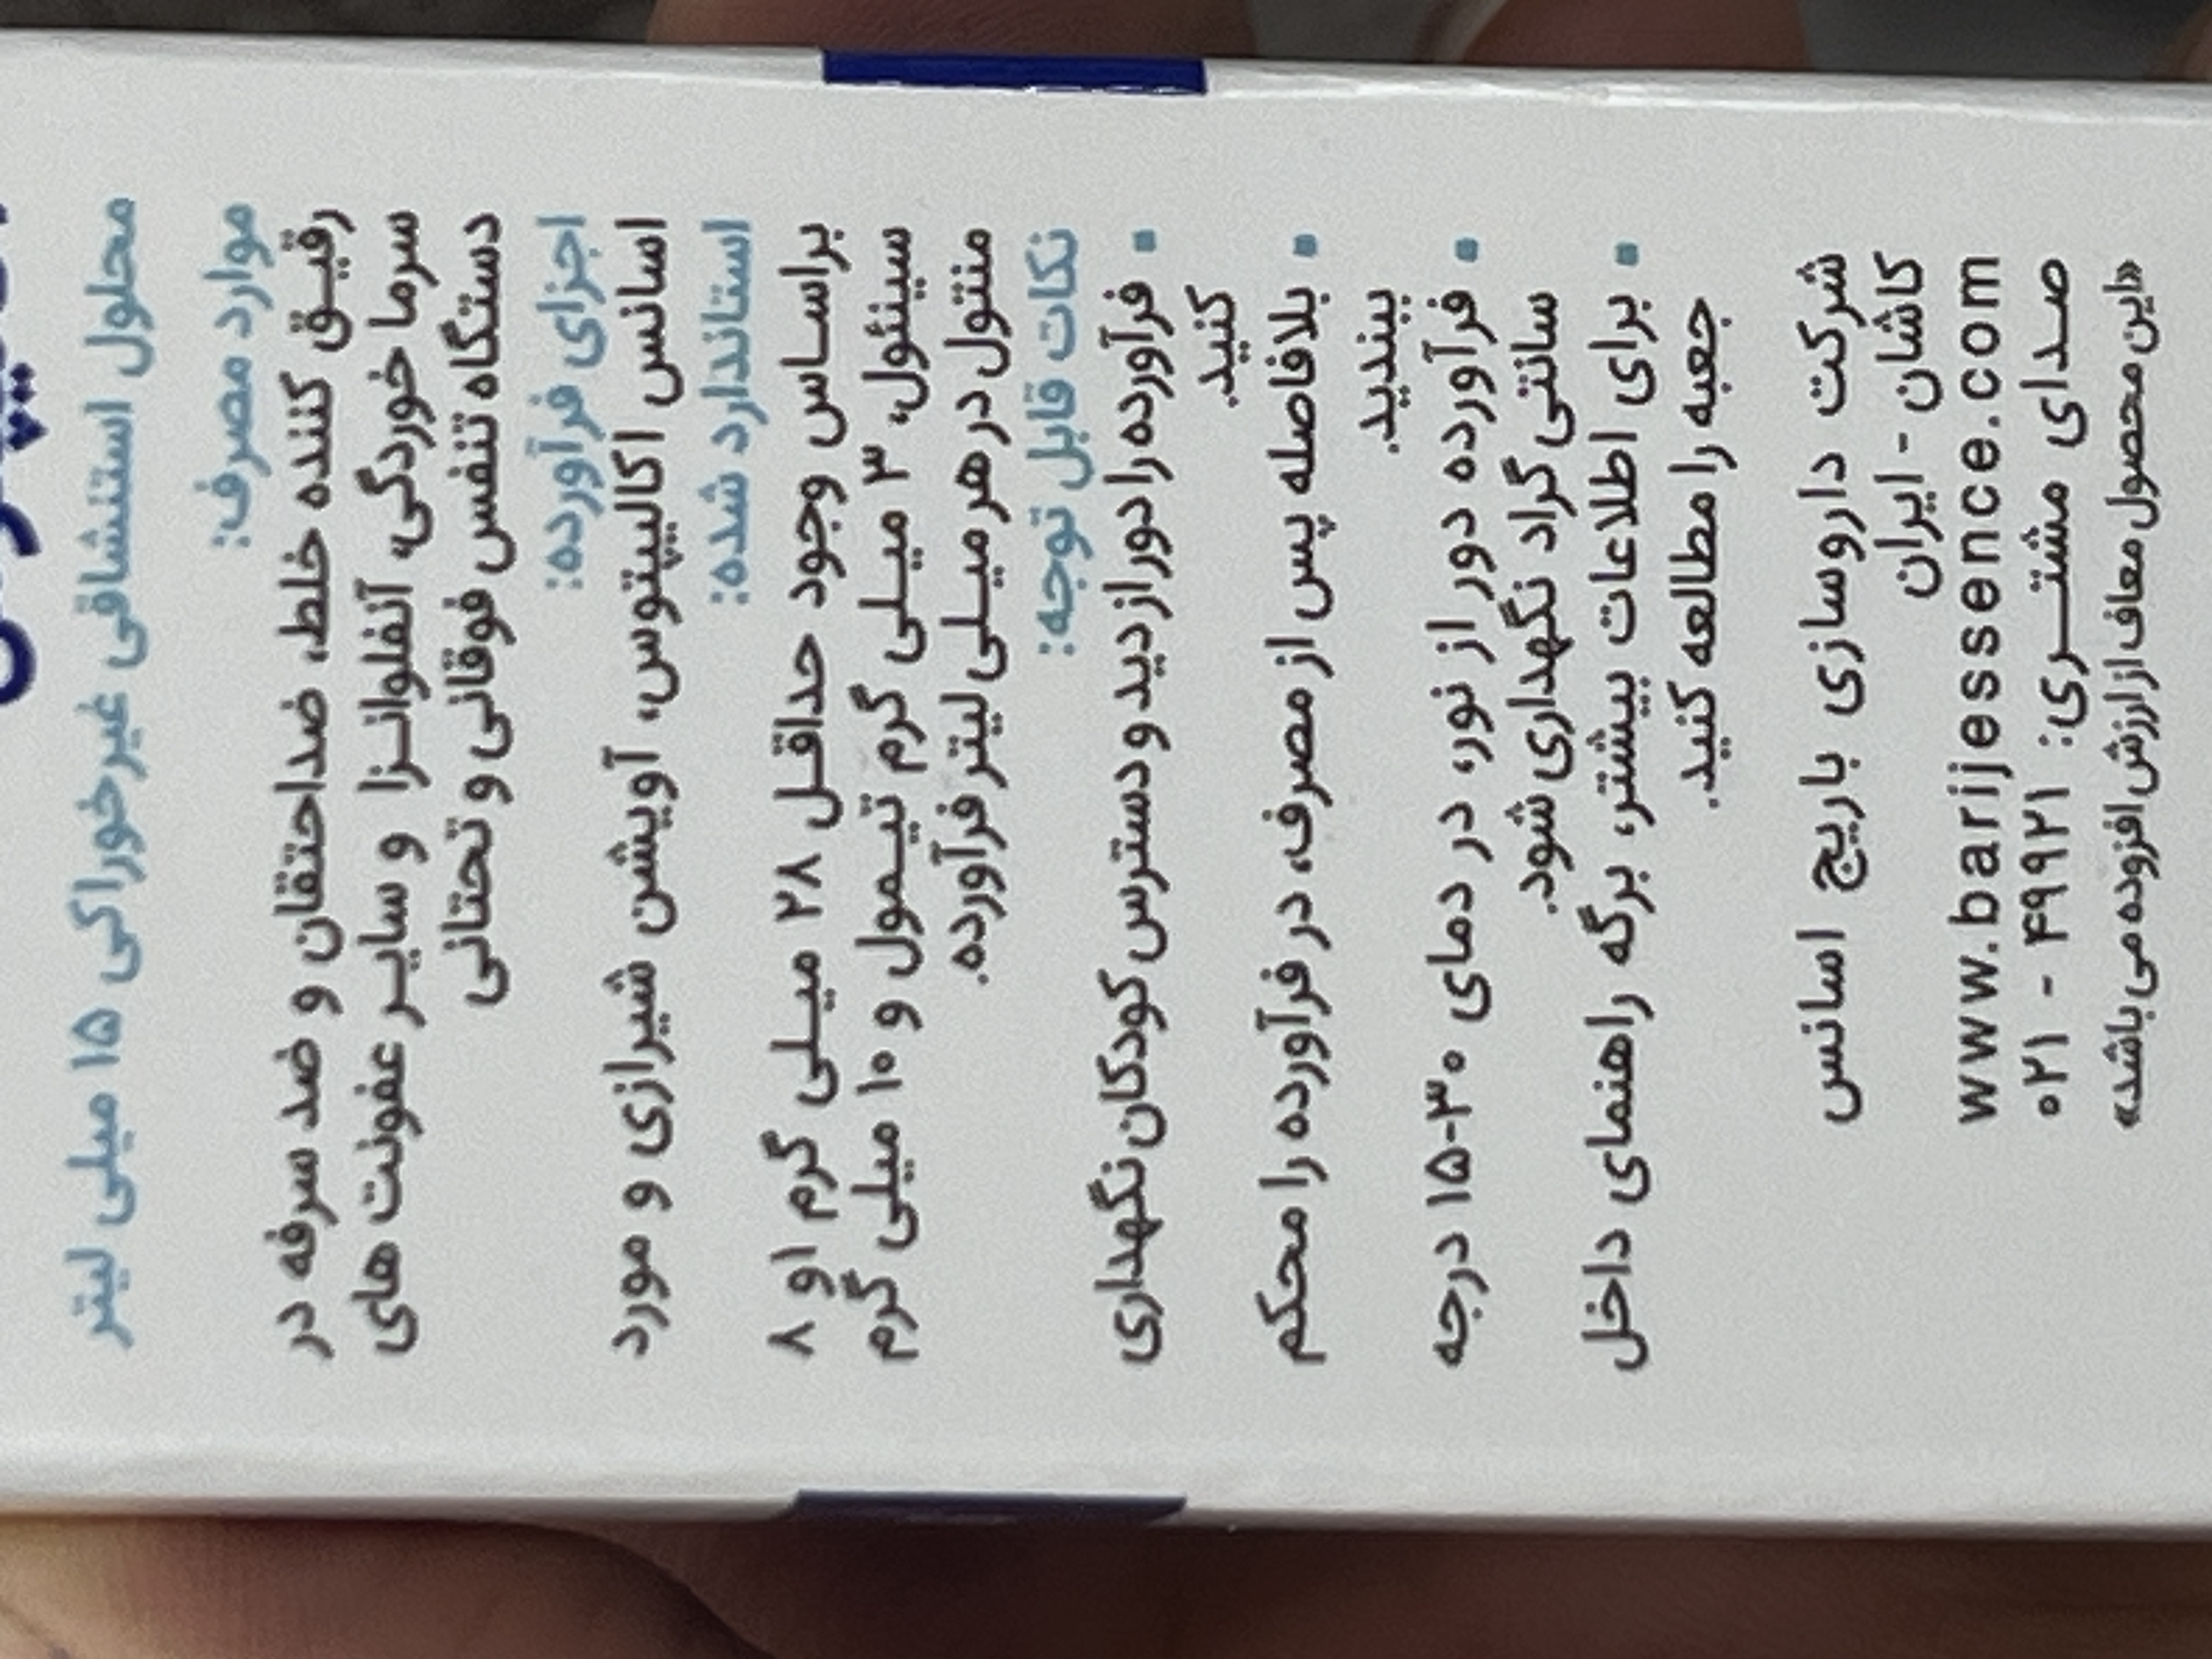 محلول استنشاقی غیرخوراکی ۱۵ میلی لیتر
موارد مصرف:
رقیق کننده خلط، ضداحتقان و ضد سرفه در
سرما خوردگی، آنفلوانزا و سایر عفونت های
دستگاه تنفس فوقانی و تحتانی
اجزای فرآورده:
اسانس اکالیپتوس، آویشن شیرازی و مورد
استاندارد شده:
براساس وجود حداقل ۲۸ میلی گرم ۱و ۸
سینئول، ۳ میلی گرم تیمول و ۱۰ میلی گرم
منتول در هر میلی لیتر فرآورده.
نکات قابل توجه:
▪ فرآورده را دور از دید و دسترس کودکان نگهداری
کنید.
▪ بلافاصله پس از مصرف، در فرآورده را محکم
ببندید.
▪ فرآورده دور از نور، در دمای ۳۰-۱۵ درجه
سانتی گراد نگهداری شود.
▪ برای اطلاعات بیشتر، برگه راهنمای داخل
جعبه را مطالعه کنید.
شرکت داروسازی باریج اسانس
کاشان - ایران
www.barijessence.com
صدای مشتری: ۴۹۹۲۱ - ۰۲۱
«این محصول معاف از ارزش افزوده می باشد»